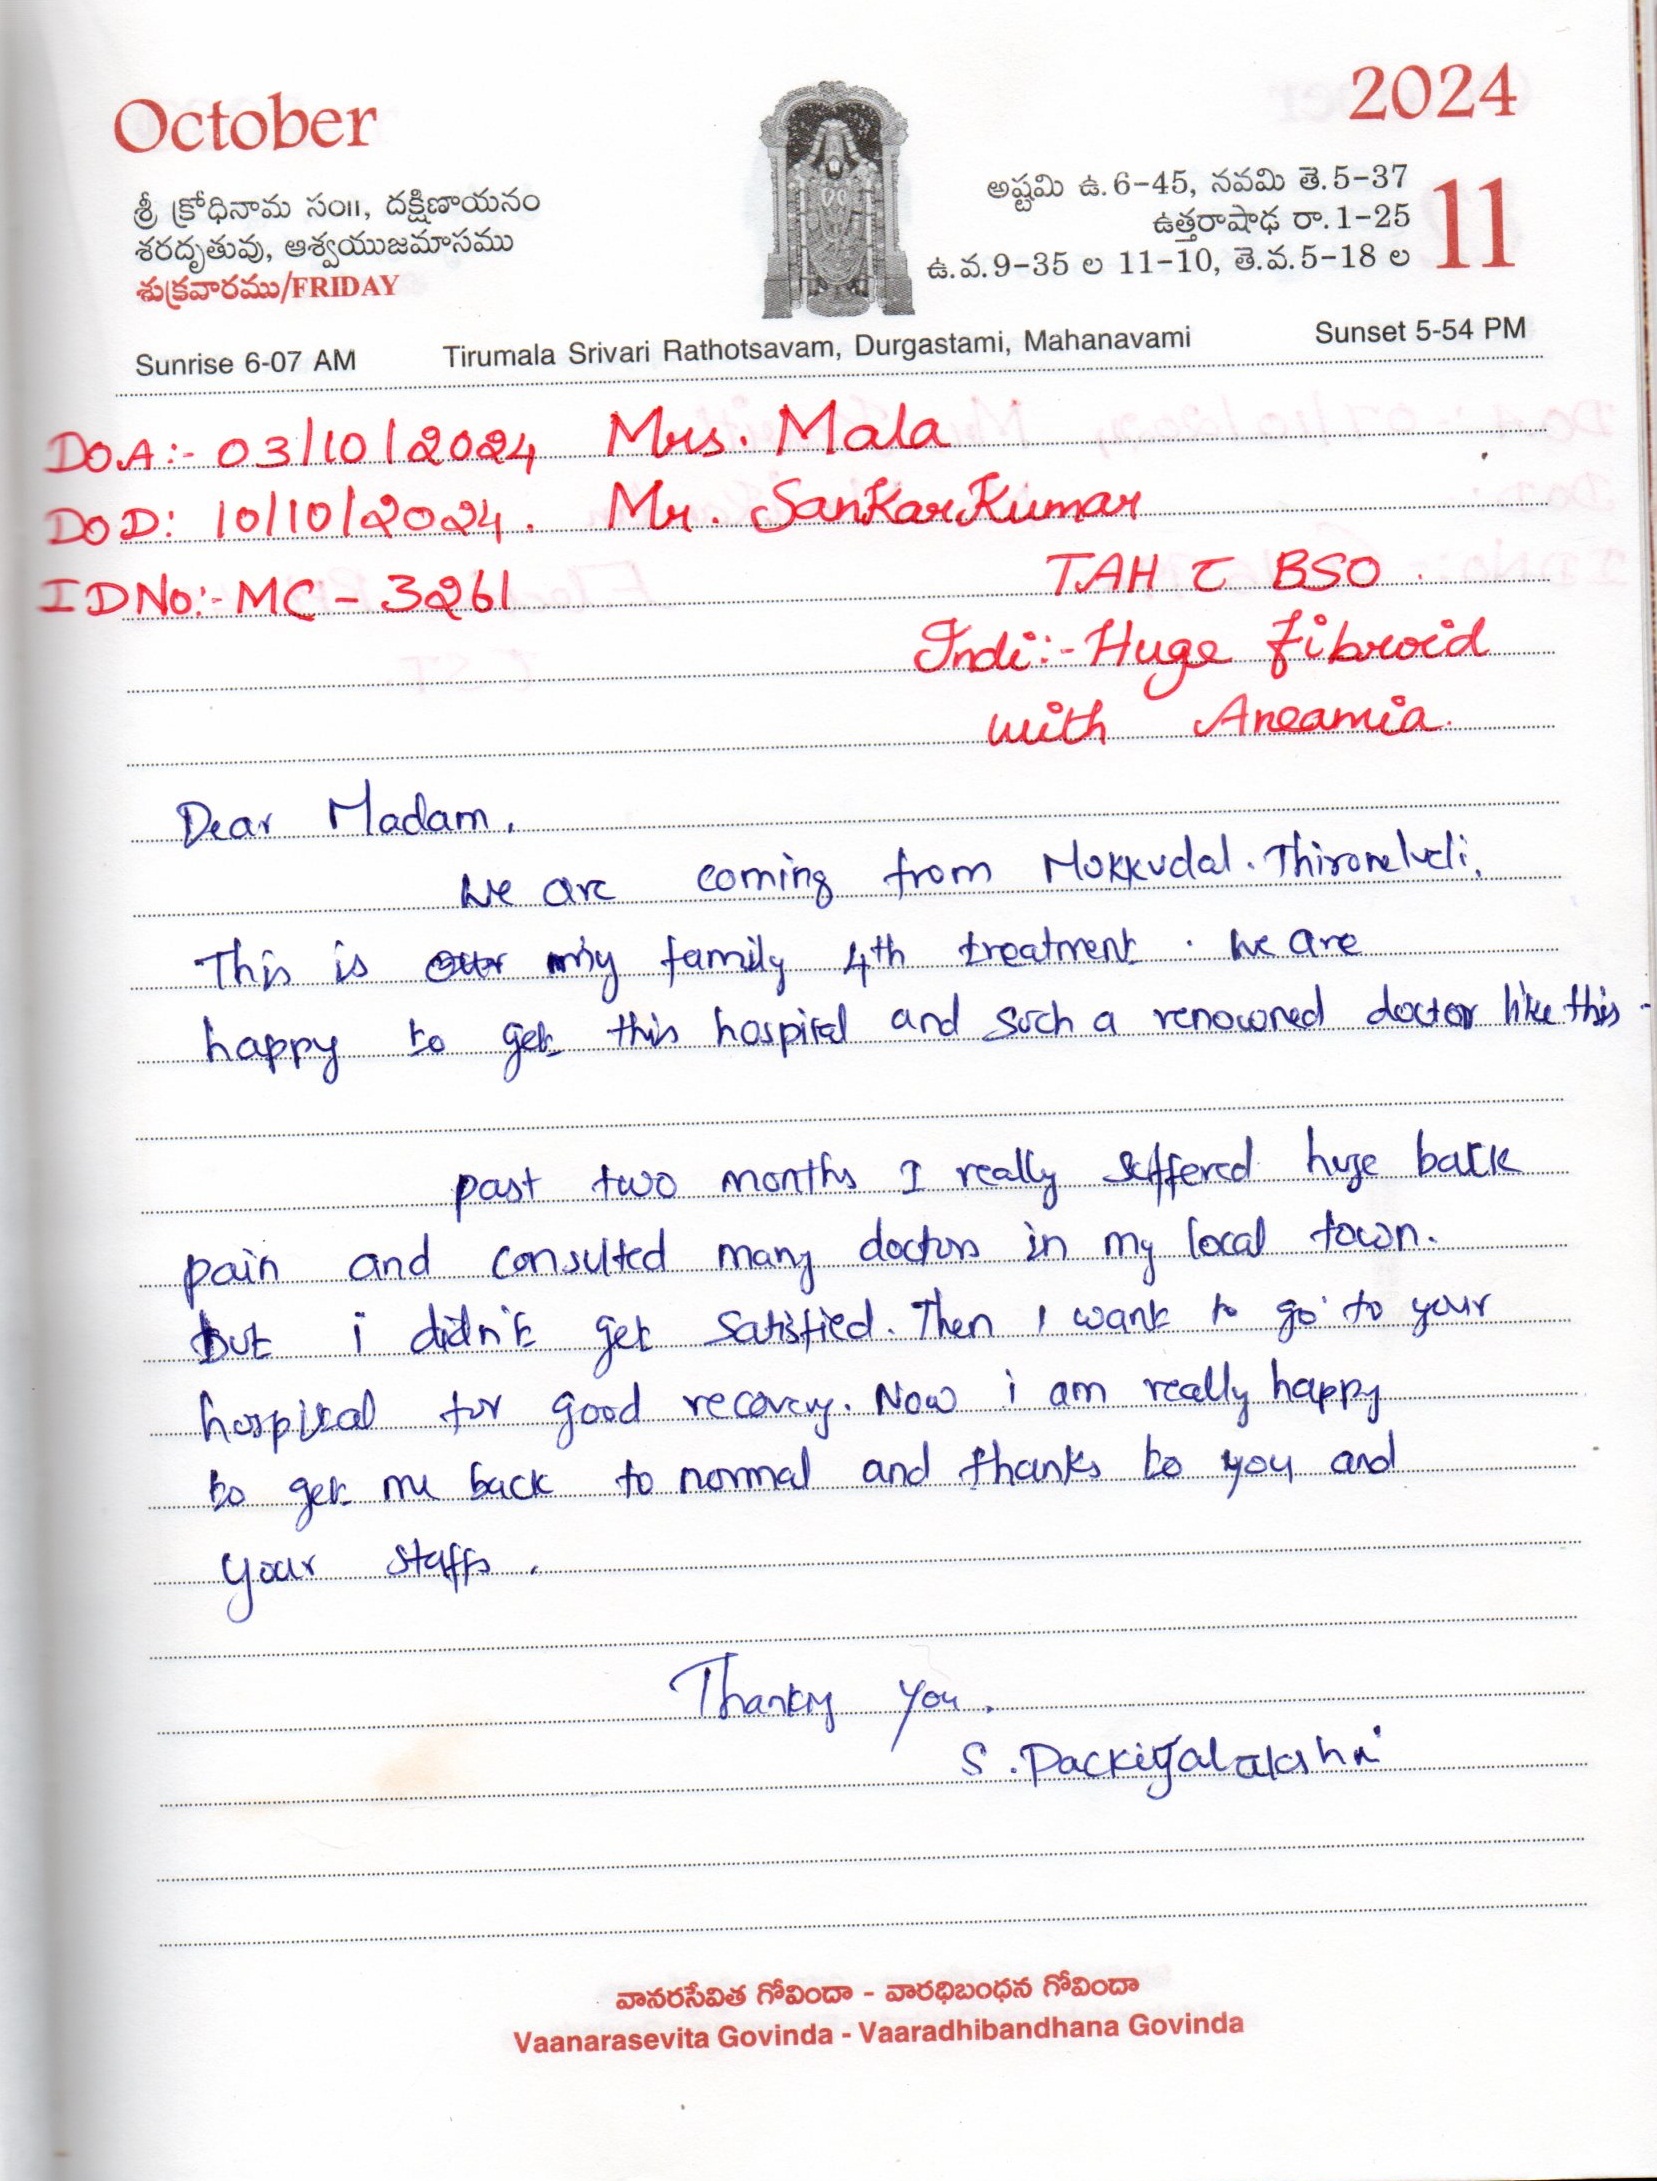 October
2024
శ్రీ క్రోధినామ సం॥, దక్షిణాయనం
శరదృతువు, ఆశ్వయుజమాసము
శుక్రవారము/FRIDAY
అష్టమి ఉ.6-45, నవమి తె.5-37
ఉత్తరాషాఢ రా.1-25
ఉ.వ.9-35 ల 11-10, తె.వ.5-18 ల
11
Sunrise 6-07 AM Tirumala Srivari Rathotsavam, Durgastami, Mahanavami Sunset 5-54 PM
DOA:- 03/10/2024 Mrs. Mala
DOD: 10/10/2024. Mr. SankarKumar
IDNo:- MC - 3261 TAH c BSO.
Indi:- Huge fibroid
with Aneamia.
Dear Madam,
We are coming from Mukkudal. Thironelveli.
This is my family 4th treatment. We are
happy to get this hospital and such a renowned doctor like this.
past two months I really suffered huge back
pain and consulted many doctors in my local town.
But i didn't get satisfied. Then I want to go to your
hospital for good recovery. Now i am really happy
to get me back to normal and thanks to you and
your staffs.
Thanking you.
S. Packiyalakshmi
వానరసేవిత గోవిందా - వారధిబంధన గోవిందా
Vaanarasevita Govinda - Vaaradhibandhana Govinda